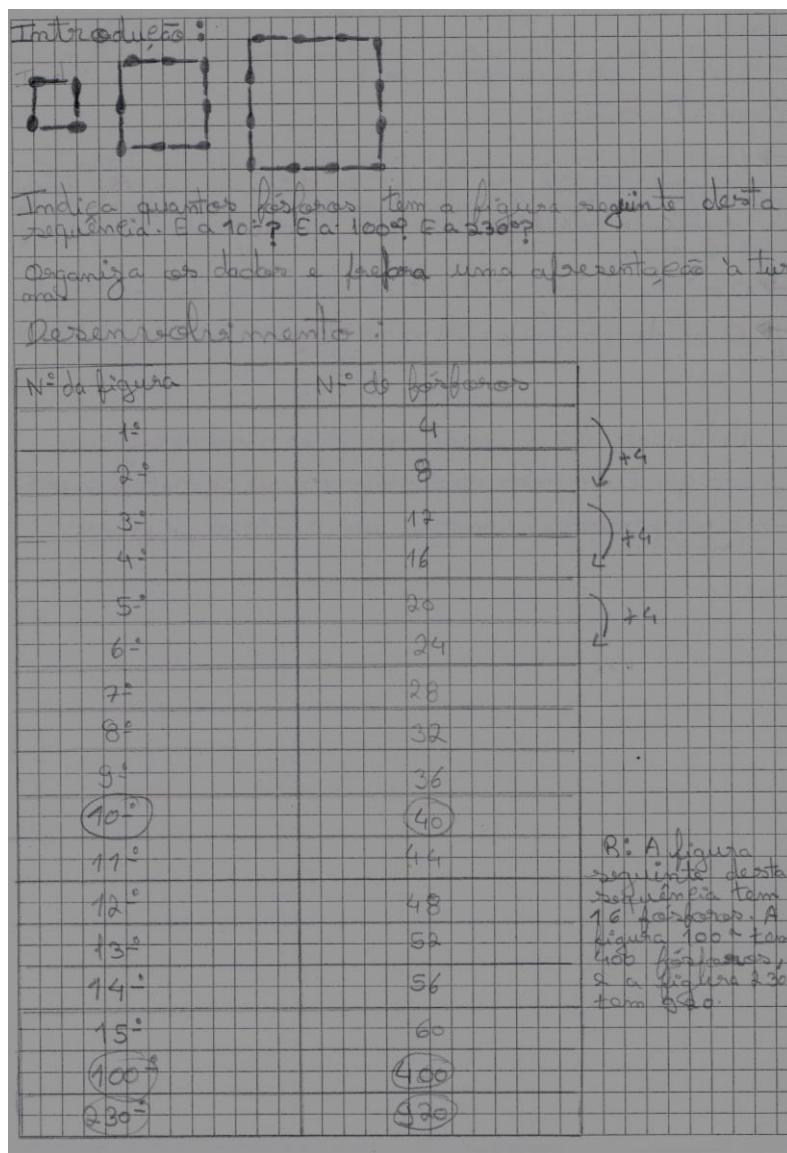 Introdução:
Indica quantos fósforos tem a figura seguinte desta
sequência. E a 10ª? E a 100ª? E a 230ª?
Organiza os dados e prepara uma apresentação à tur
ma
Desenvolvimento:
Nº da figura Nº de fósforos
1ª 4
+4
2ª 8
3ª 12
+4
4ª 16
5ª 20
+4
6ª 24
7ª 28
8ª 32
9ª 36
10ª 40
11ª 44
12ª 48
13ª 52
14ª 56
15ª 60
100ª 400
230ª 920
R: A figura
seguinte desta
sequência tem
16 fósforos. A
figura 100ª tem
400 fósforos,
e a figura 230
tem 920.